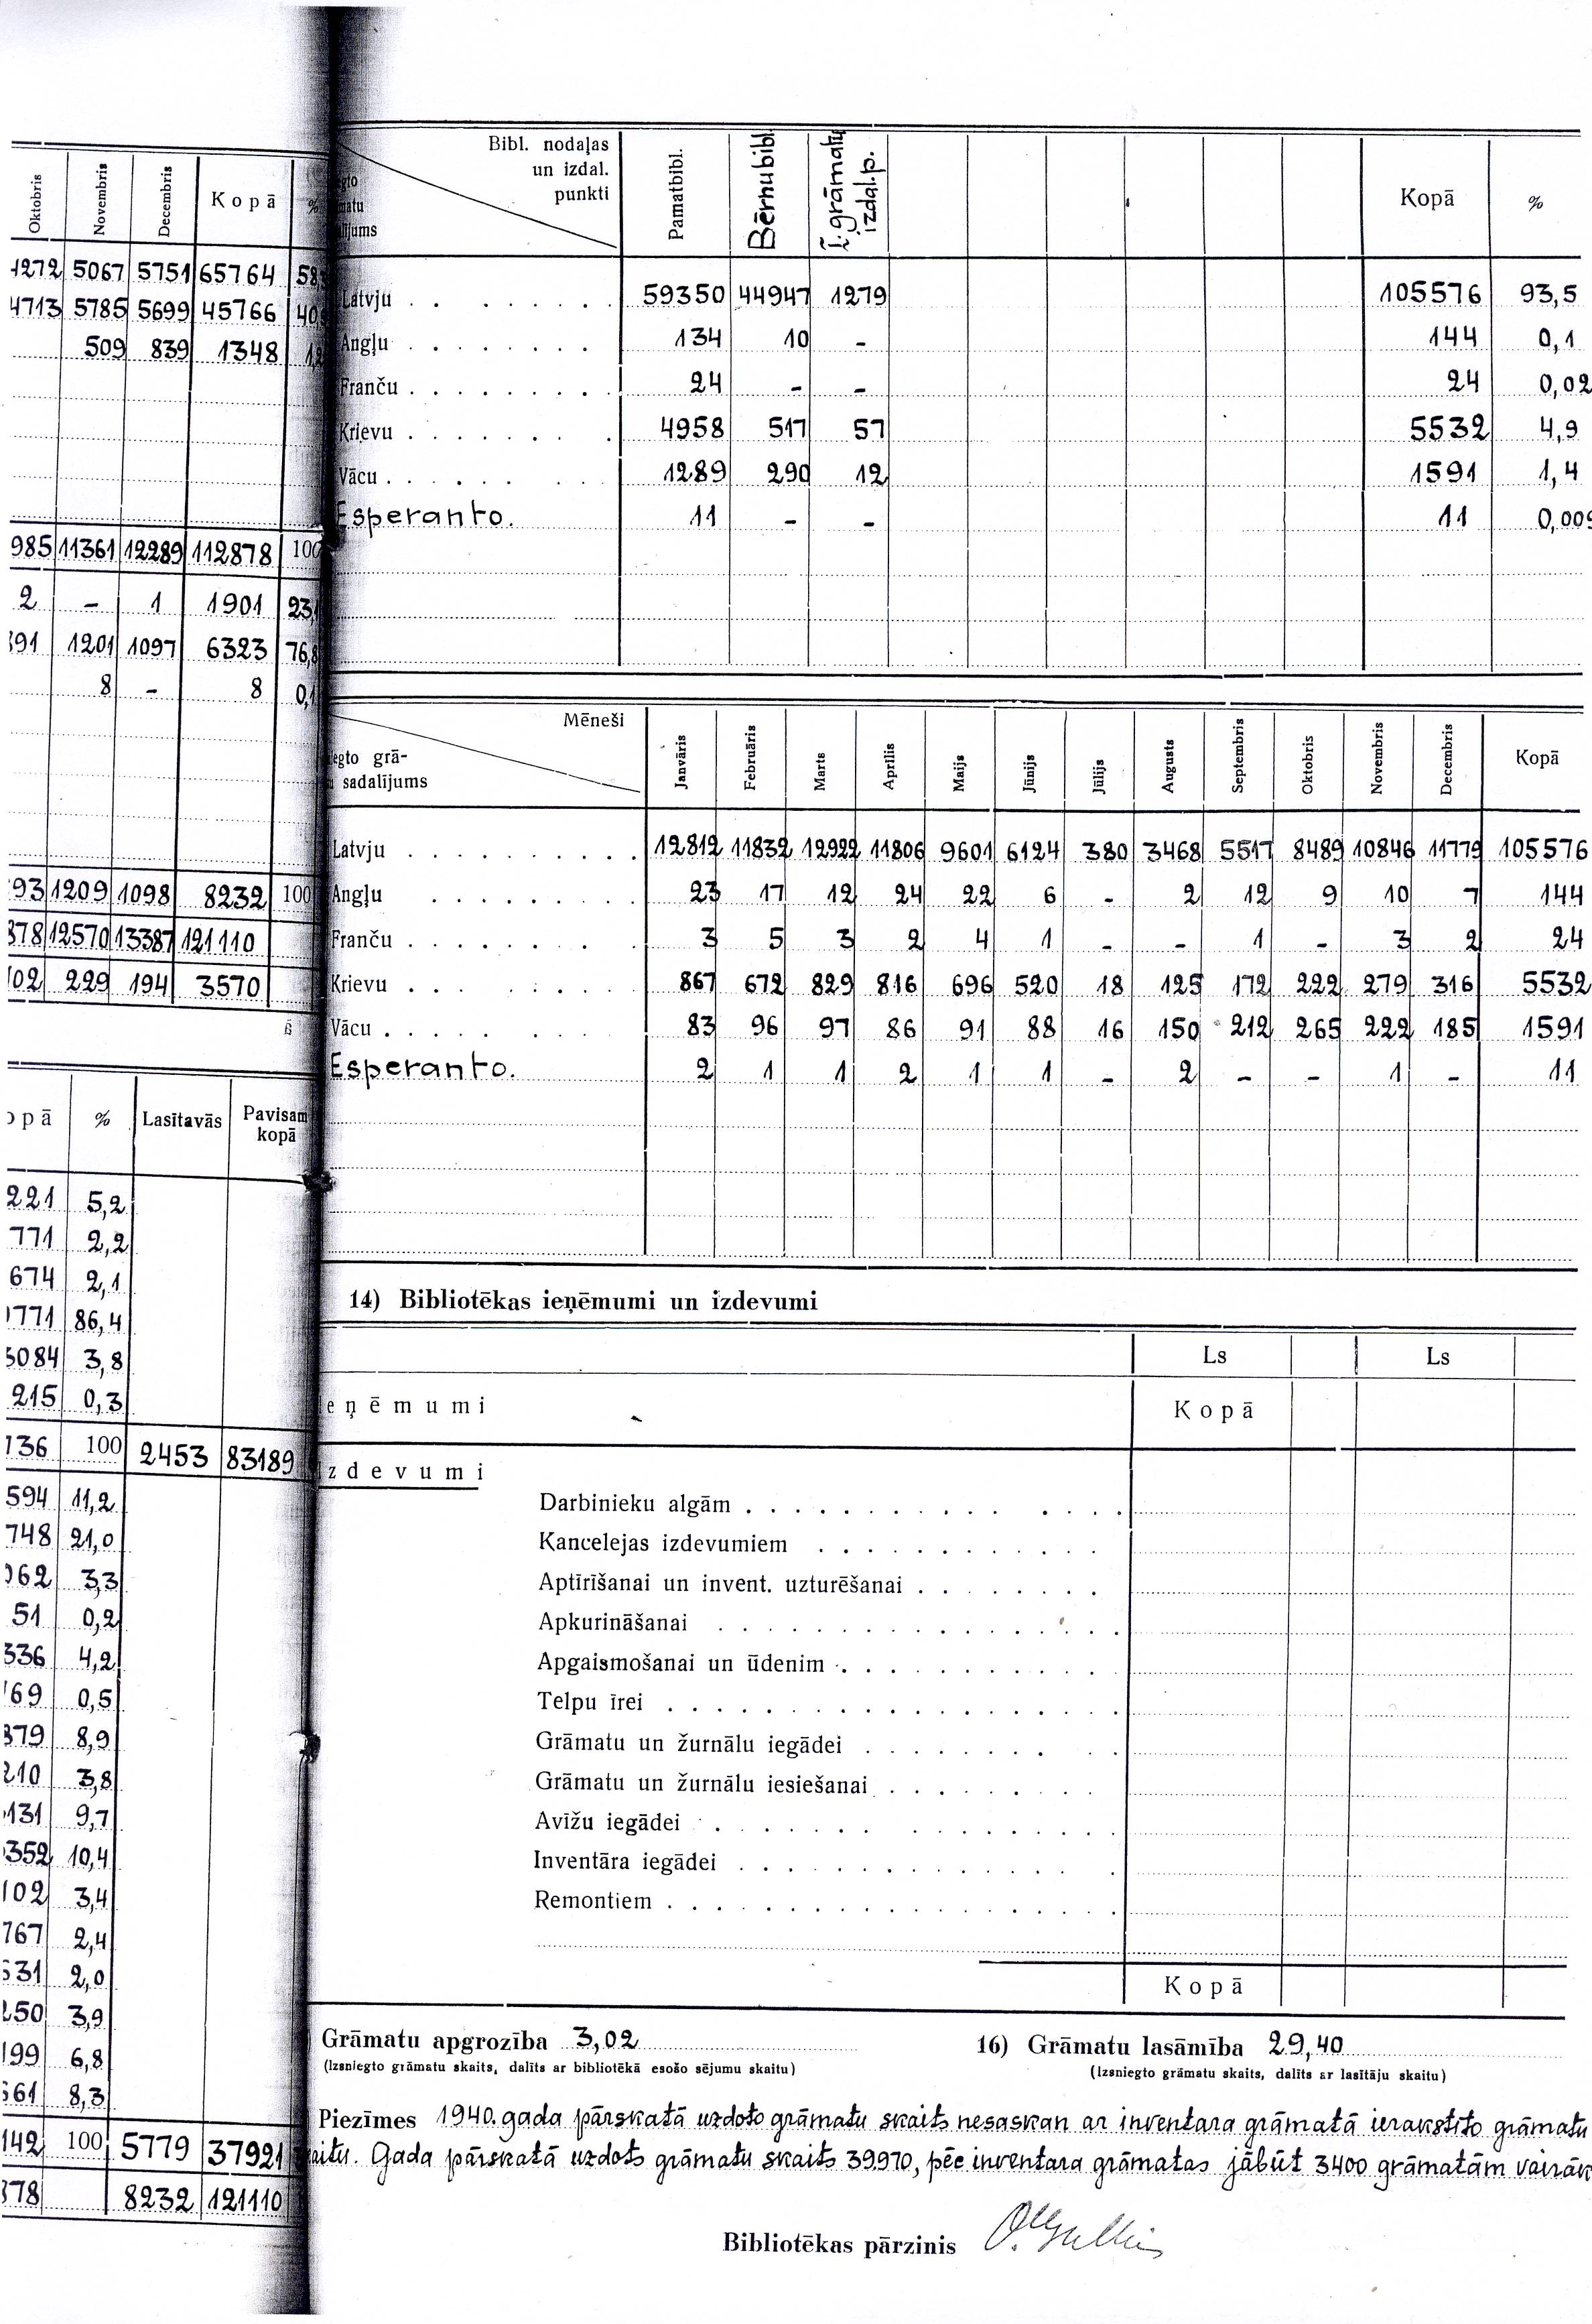 Oktobris Novembris Decembris Kopā %
4272 5067 5751 65764 58,
4713 5785 5699 45766 40,
509 839 1348 1,2
985 11361 12289 112878 100
2 – 1 1901 23,
391 1201 1097 6323 76,8
8 – 8 0,1
93 1209 1098 8232 100
378 12570 13387 121110
02 229 194 3570
opā % Lasītavās Pavisam kopā
221 5,2
771 2,2
674 2,1
771 86,4
5084 3,8
215 0,3
136 100 2453 83189
594 11,2
748 21,0
062 3,3
51 0,2
336 4,2
169 0,5
379 8,9
210 3,8
131 9,7
352 10,4
102 3,4
767 2,4
531 2,0
250 3,9
199 6,8
561 8,3
142 100 5779 37921
378 8232 121110
Bibl. nodaļas
un izdal.
punkti
Pamatbibl. Bērnubibl. Ī. grāmatu izdal.p. Kopā %
Latvju 59350 44947 1279 105576 93,5
Angļu 134 10 – 144 0,1
Franču 24 – – 24 0,02
Krievu 4958 517 57 5532 4,9
Vācu 1289 290 12 1591 1,4
Esperanto. 11 – – 11 0,009
Mēneši
egto grā-
sadalījums
Janvāris Februāris Marts Aprīlis Maijs Jūnijs Jūlijs Augusts Septembris Oktobris Novembris Decembris Kopā
Latvju 12812 11832 12922 11806 9601 6124 380 3468 5517 8489 10846 11779 105576
Angļu 23 17 12 24 22 6 – 2 12 9 10 7 144
Franču 3 5 3 2 4 1 – – 1 – 3 2 24
Krievu 867 672 829 816 696 520 18 125 172 222 279 316 5532
Vācu 83 96 97 86 91 88 16 150 212 265 222 185 1591
Esperanto. 2 1 1 2 1 1 – 2 – – 1 – 11
14) Bibliotēkas ieņēmumi un izdevumi
Ls Ls
eņēmumi Kopā
zdevumi
Darbinieku algām
Kancelejas izdevumiem
Aptīrīšanai un invent. uzturēšanai
Apkurināšanai
Apgaismošanai un ūdenim
Telpu īrei
Grāmatu un žurnālu iegādei
Grāmatu un žurnālu iesiešanai
Avīžu iegādei
Inventāra iegādei
Remontiem
Kopā
Grāmatu apgrozība 3,02 16) Grāmatu lasāmība 29,40
(Izsniegto grāmatu skaits, dalīts ar bibliotēkā esošo sējumu skaitu) (Izsniegto grāmatu skaits, dalīts ar lasītāju skaitu)
Piezīmes 1940. gada pārskatā uzdoto grāmatu skaits nesaskan ar inventara grāmatā ierakstīto grāmatu
aitu. Gada pārskatā uzdots grāmatu skaits 39.970, pēc inventara grāmatas jābūt 3400 grāmatām vairāk
Bibliotēkas pārzinis